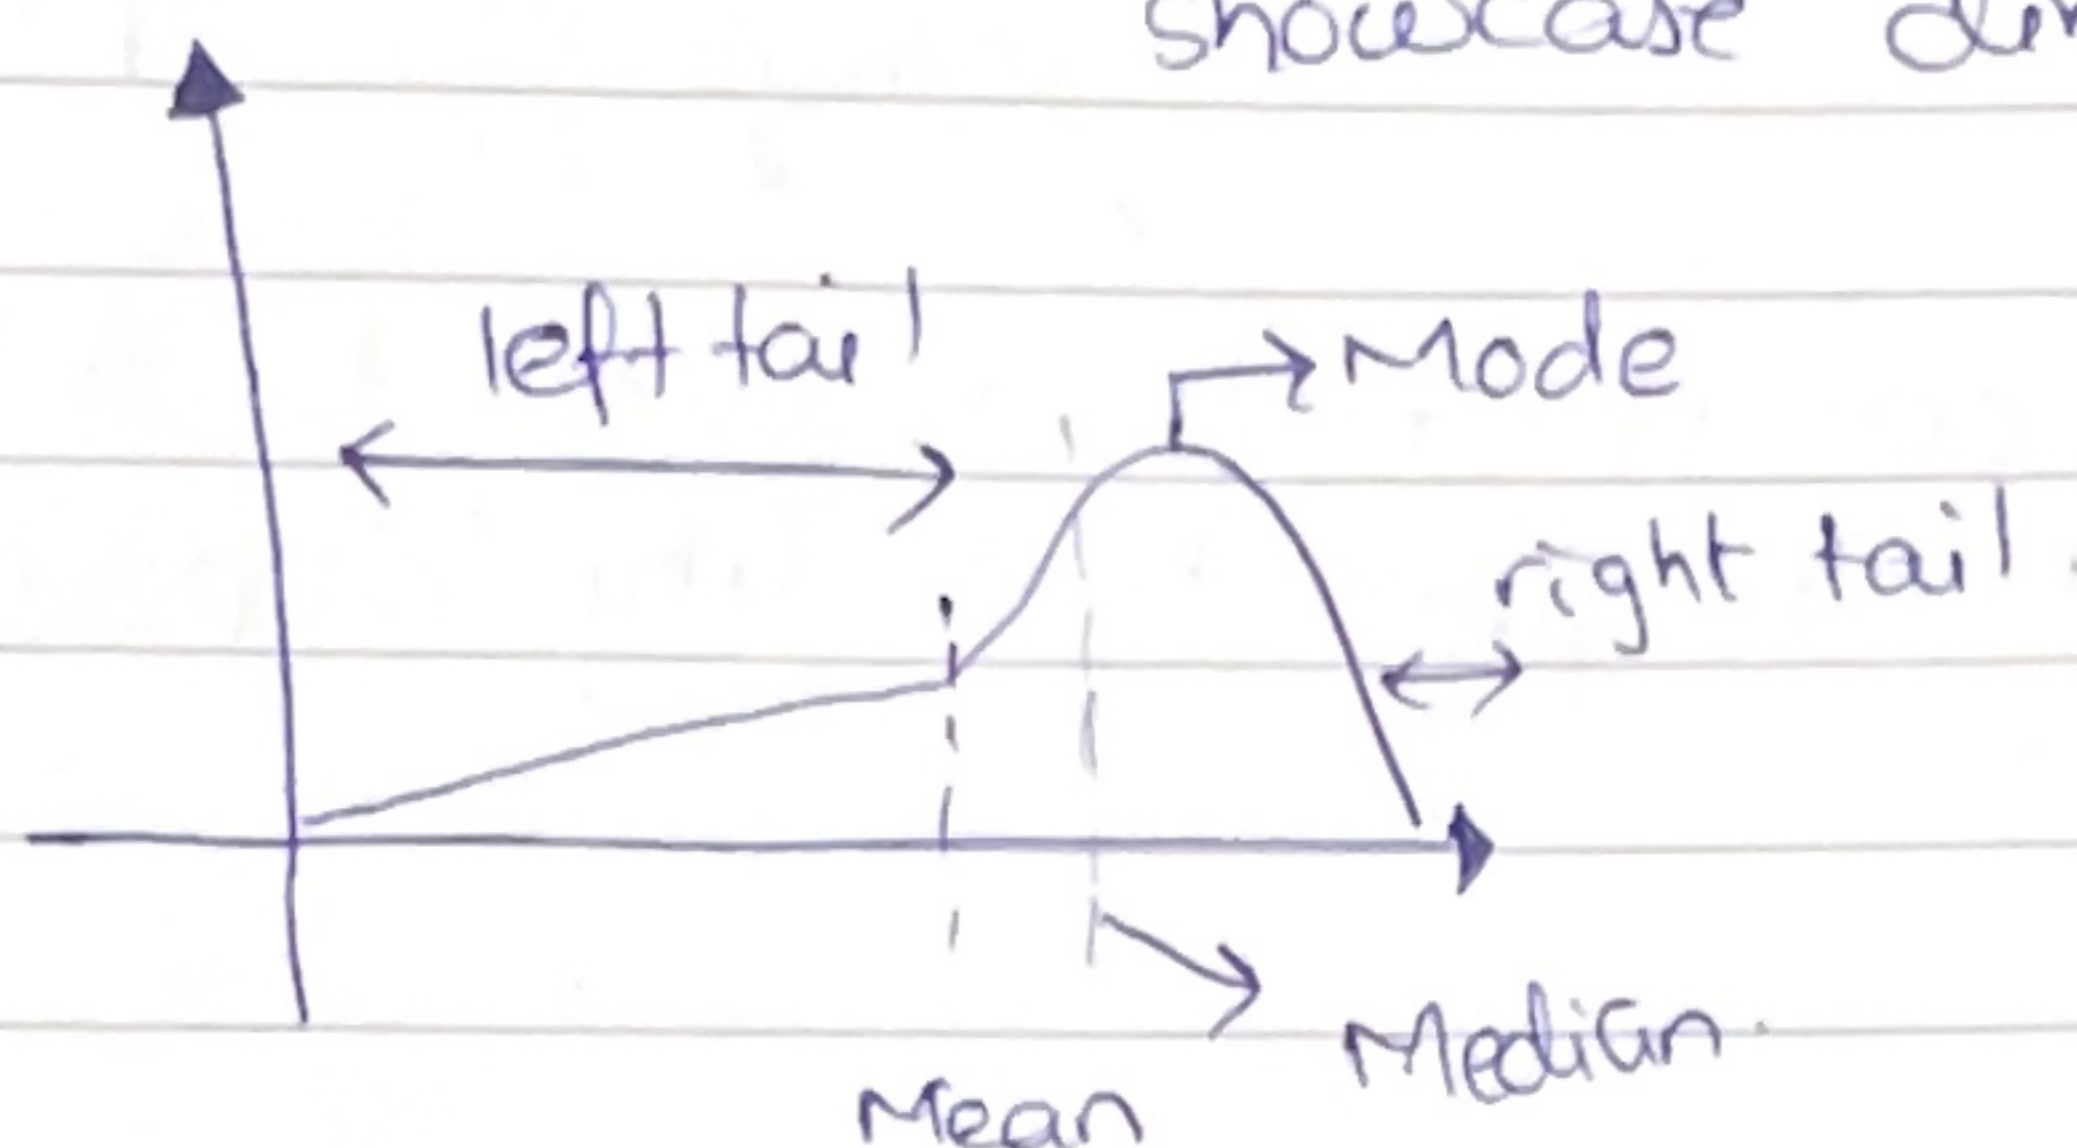 showcase
left tail
Mode
right tail
Median
Mean